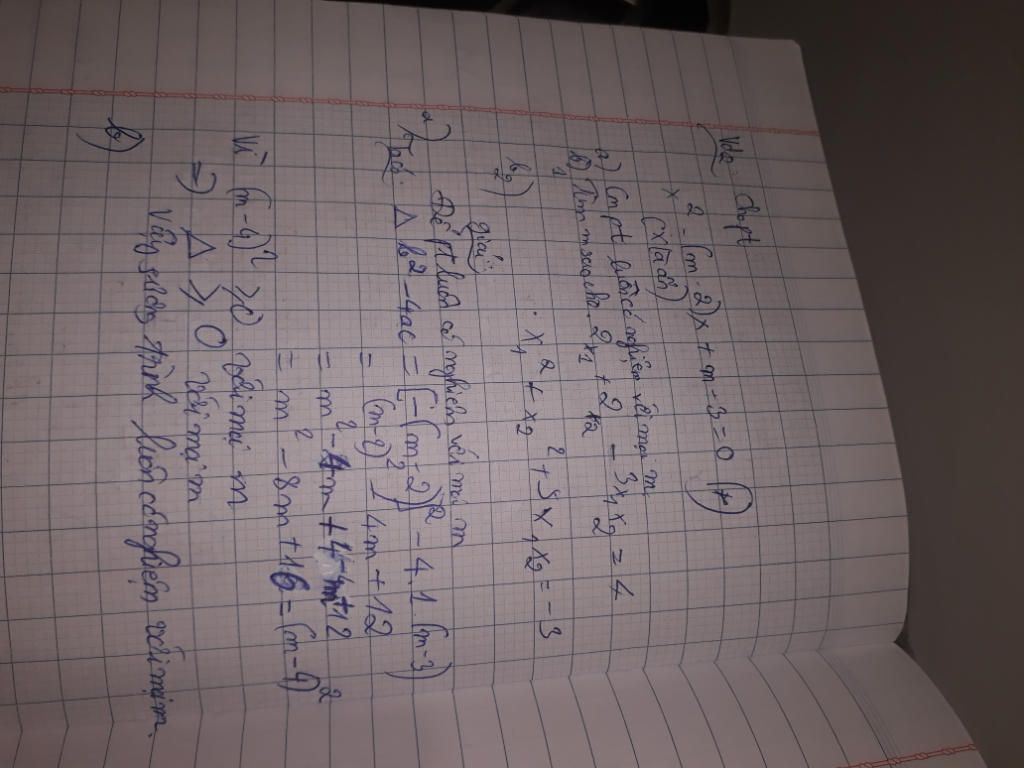 Vd2: Cho pt
x² - (m-2)x + m-3 = 0 (*)
(x là ẩn)
a) Cm pt luôn có nghiệm với mọi m
b) b₁) Tìm m sao cho 2x₁ + 2x₂ - 3x₁x₂ = 4
b₂) x₁² + x₂² + 5x₁x₂ = -3
giải:
a) Để pt luôn có nghiệm với mọi m
Ta có: Δ b² - 4ac = [-(m-2)]² - 4.1 (m-3)
= (m-2)² - 4m + 12
= m² - 4m + 4 - 4m + 12
= m² - 8m + 16 = (m-4)²
Vì (m-4)² ≥ 0 với mọi m
=> Δ ≥ 0 với mọi m
Vậy phương trình luôn có nghiệm với mọi m.
b)